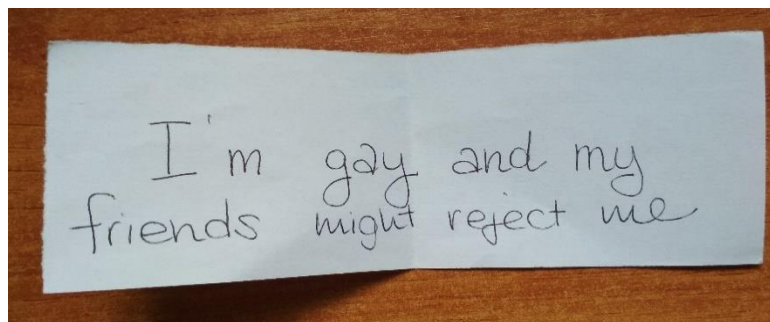 I'm gay and my
friends might reject me